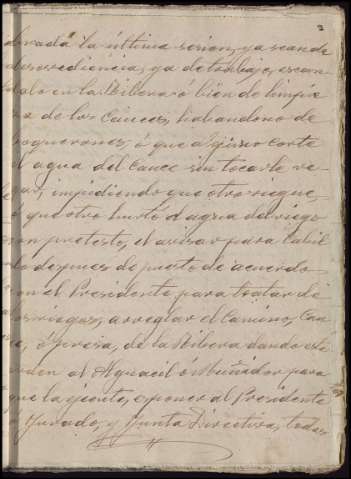 2
dorada la última sesion, ya sean de
desovediencia, ya de trabajo, escan
dalo en la Ribera ó bien de limpie
za de los Cauces, habandono de
boquerones, ó que alguno corte
el agua del Cauce sin tocarle re-
gar, impidiendo que otro riegue,
ó que otro hurtó el agua del riego
con pretesto, el avisar para Cabil
do despues de puesto de acuerdo
con el Presidente para tratar de
los riegos, arreglar el Camino, Cau
ce, ó presa, de la Ribera dando este
orden al Alguacil ó Muñidor para
que la ejecute, esponer al Presidente
ó Jurado, y Junta Directiva, todas